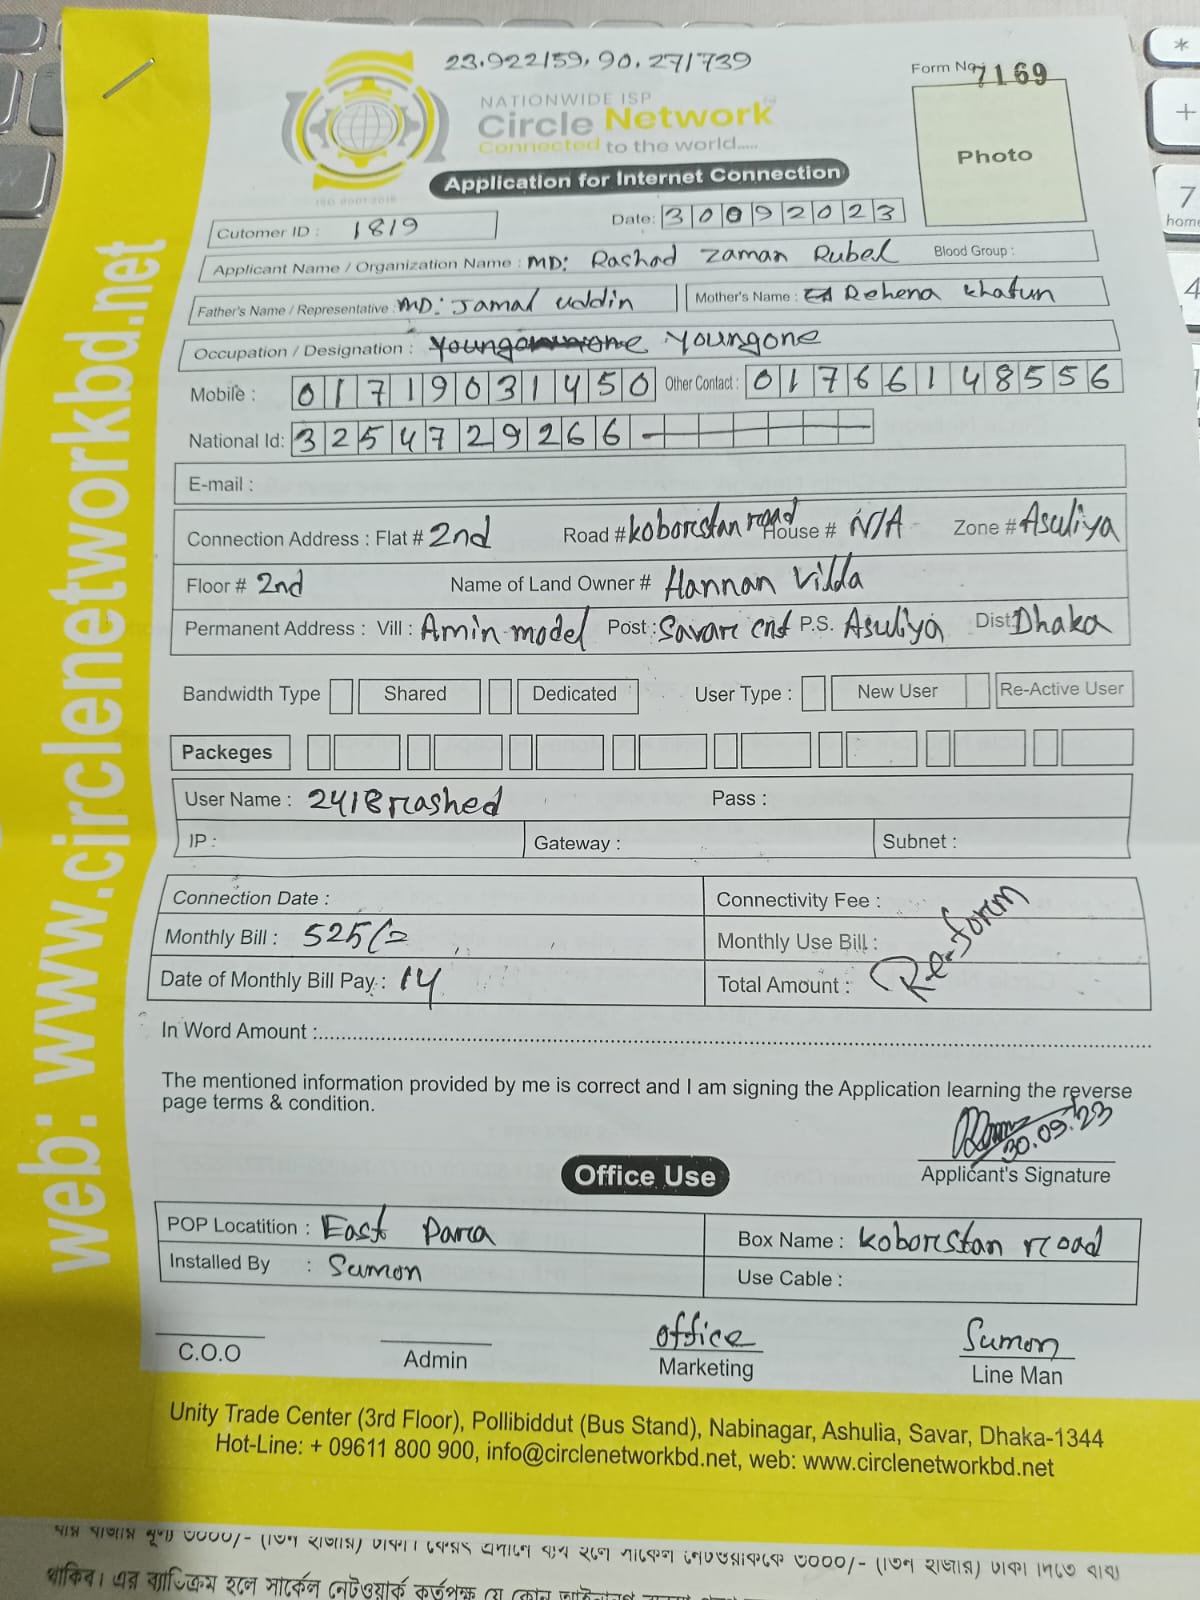 23.922159, 90.271739
Form No: 7169
NATIONWIDE ISP
Circle Network
Connected to the world.....
ISO 9001:2015
Photo
Application for Internet Connection
Cutomer ID : 1819
Date: 30092023
Applicant Name / Organization Name : MD: Rashad Zaman Rubel Blood Group :
Father's Name / Representative : MD: Jamal Uddin Mother's Name : Rehena Khatun
Occupation / Designation : Youngone
Mobile : 01719031450 Other Contact : 01766148556
National Id: 3254729266
E-mail :
Connection Address : Flat # 2nd Road # koborstan road House # N/A Zone # Asuliya
Floor # 2nd Name of Land Owner # Hannan Villa
Permanent Address : Vill : Amin model Post : Savar cnt P.S. Asuliya Dist: Dhaka
Bandwidth Type Shared Dedicated User Type : New User Re-Active User
Packeges
User Name : 2418rashed Pass :
IP : Gateway : Subnet :
Connection Date : Connectivity Fee :
Monthly Bill : 525/= Monthly Use Bill :
Date of Monthly Bill Pay : 14 Total Amount :
Re-form
In Word Amount :
The mentioned information provided by me is correct and I am signing the Application learning the reverse
page terms & condition.
30.09.23
Applicant's Signature
Office Use
POP Locatition : East Para Box Name : koborstan road
Installed By : Sumon Use Cable :
office Sumon
C.O.O Admin Marketing Line Man
Unity Trade Center (3rd Floor), Pollibiddut (Bus Stand), Nabinagar, Ashulia, Savar, Dhaka-1344
Hot-Line: + 09611 800 900, info@circlenetworkbd.net, web: www.circlenetworkbd.net
web: www.circlenetworkbd.net
৩০০০/- (তিন হাজার) টাকা
থাকিব। এর ব্যাতিক্রম হলে সার্কেল নেটওয়ার্ক কর্তৃপক্ষ যে কোন